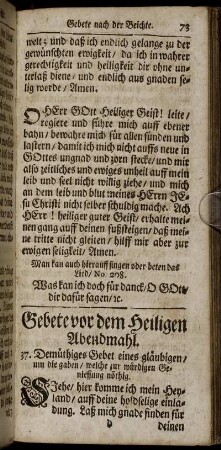 Gebete nach der Beichte. 73
welt; und daß ich endlich gelange zu der
gewünschten ewigkeit/ da ich in wahrer
gerechtigkeit und heiligkeit dir ohne un-
terlaß diene/ und endlich aus gnaden se-
lig werde/ Amen.
O HErr GOtt Heiliger Geist! leite/
regiere und führe mich auff ebener
bahn/ bewahre mich für allen sünden und
lastern/ damit ich mich nicht auffs neue in
GOttes ungnad und zorn stecke/ und mir
also zeitliches und ewiges unheil auff mein
leib und seel nicht willig ziehe/ und mich
an dem leib und blut meines HErrn JE-
su Christi nicht selber schuldig mache. Ach
HErr! heiliger guter Geist/ erhalte mei-
nen gang auff deinen fußsteigen/ daß mei-
ne tritte nicht gleiten/ hilff mir aber zur
ewigen seligkeit/ Amen.
Man kan auch hierauff singen oder beten das
Lied/ No. 208.
Was kan ich doch für danck/ O GOtt/
dir dafür sagen/ ꝛc.
Gebete vor dem Heiligen
Abendmahl.
37. Demüthiges Gebet eines gläubigen/
um die gaben/ welche zur würdigen Ge-
niessung nöthig.
SJehe/ hier komme ich mein Hey-
land/ auff deine holdselige einla-
dung. Laß mich gnade finden für
deinen